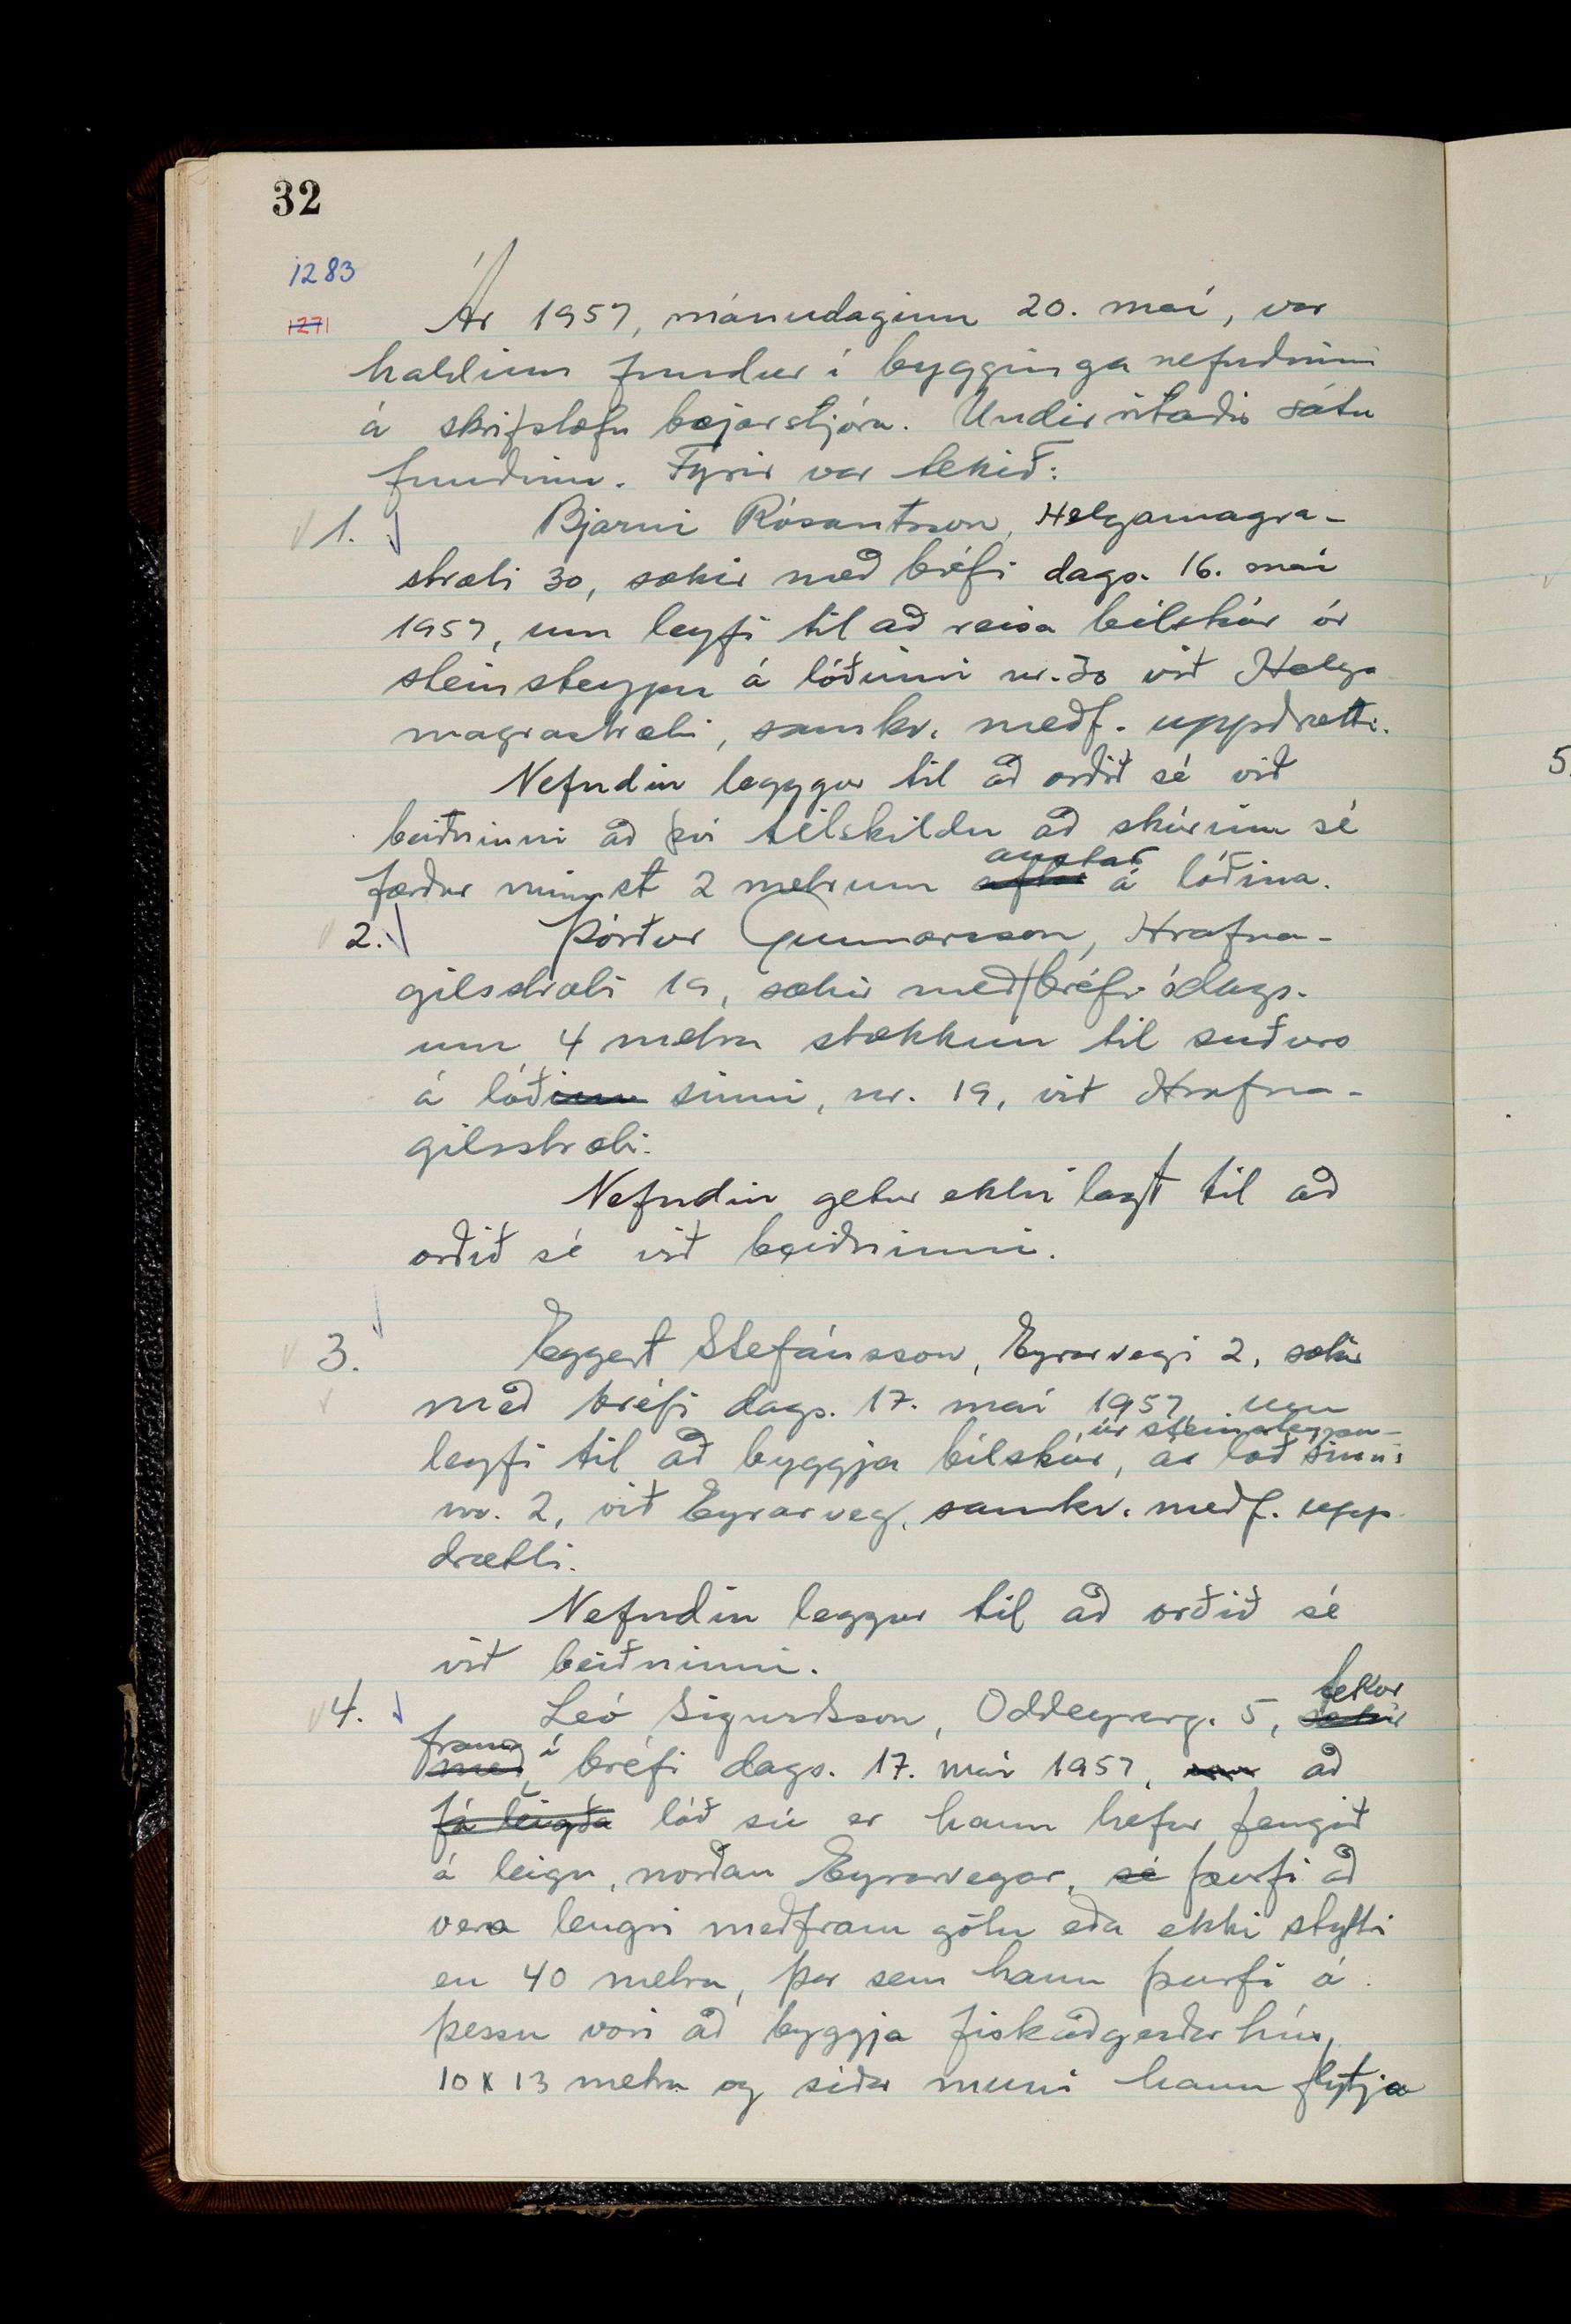 32
1283
1271
Ár 1957, mánudaginn 20. maí, var
haldinn fundur í bygginganefndinni
á skrifstofu bæjarstjóra. Undirritaðir sátu
fundinn. Fyrir var tekið:
1. Bjarni Rósantsson, Helgamagra-
stræti 30, sækir með bréfi dags. 16. maí
1957, um leyfi til að reisa bílskúr úr
steinsteypu á lóðinni nr. 30 við Helga
magrastræti, samkv. meðf. uppdrætti.
Nefndin leggur til að orðið sé við
beiðninni að því tilskildu að skúrinn sé
færður minnst 2 metrum aftar austar á lóðina.
2. Þórður Gunnarsson, Hrafna-
gilsstræti 19, sækir með bréfi ódags.
um 4 metra stækkun til suðurs
á lóðinni sinni, nr. 19, við Hrafna-
gilsstræti.
Nefndin getur ekki lagt til að
orðið sé við beiðninni.
3. Eggert Stefánsson, Eyrarvegi 2, sækir
með bréfi dags. 17. maí 1957 um
leyfi til að byggja bílskúr, úr steinsteypu- á lóð sinni
nr. 2, við Eyrarveg, samkv. meðf. upp
drætti.
Nefndin leggur til að orðið sé
við beiðninni.
4. Leó Sigurðsson, Oddeyrarg. 5, sækir tekur
með fram í bréfi dags. 17. maí 1957, um að
fá leigða lóð sú er hann hefur fengið
á leigu, norðan Eyrarvegar, sé þurfi að
vera lengri meðfram götu eða ekki stytti
en 40 metra, þar sem hann þurfi á
þessu vori að byggja fiskaðgerðarhús,
10 x 13 metra og síðar muni hann flytja
5.